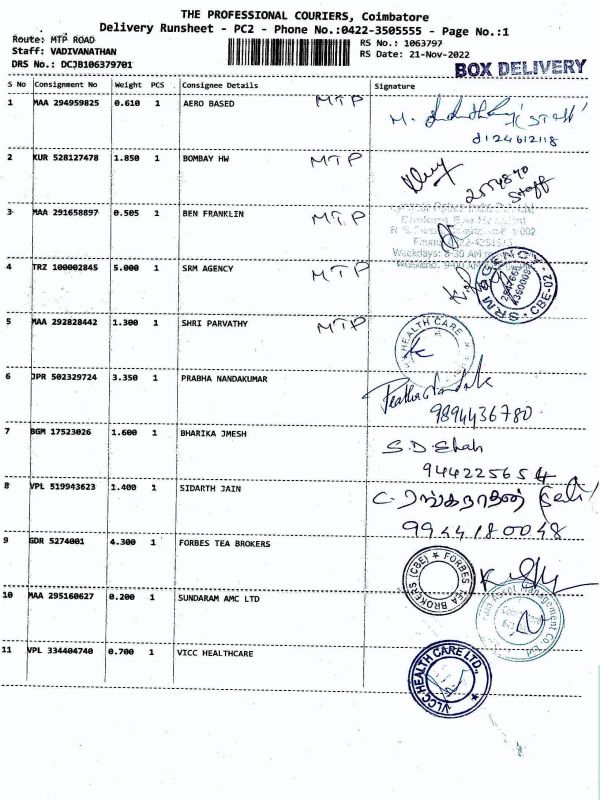 THE PROFESSIONAL COURIERS, Coimbatore
Delivery Runsheet - PC2 - Phone No.:0422-3505555 - Page No.:1
Route: MTP ROAD
Staff: VADIVANATHAN
DRS No.: DCJB106379701
RS No.: 1063797
RS Date: 21-Nov-2022
BOX DELIVERY
S No Consignment No Weight PCS Consignee Details Signature
1 MAA 294959825 0.610 1 AERO BASED MTP
2 KUR 528127478 1.850 1 BOMBAY HW MTP
Staff
3 MAA 291658897 0.505 1 BEN FRANKLIN MTP
4 TRZ 100002845 5.000 1 SRM AGENCY MTP
SRM AGENCY CBE-02
5 MAA 292828442 1.300 1 SHRI PARVATHY MTP
HEALTH CARE
6 JPR 502329724 3.350 1 PRABHA NANDAKUMAR
9894436780
7 BGM 17523026 1.600 1 BHARIKA JMESH
S.D.Shah
9442256554
8 VPL 519943623 1.400 1 SIDARTH JAIN
9944180048
9 GDR 5274001 4.300 1 FORBES TEA BROKERS
FORBES TEA BROKERS (CBE)
10 MAA 295160627 0.200 1 SUNDARAM AMC LTD
11 VPL 334404740 0.700 1 VICC HEALTHCARE
VLCC HEALTH CARE LTD.